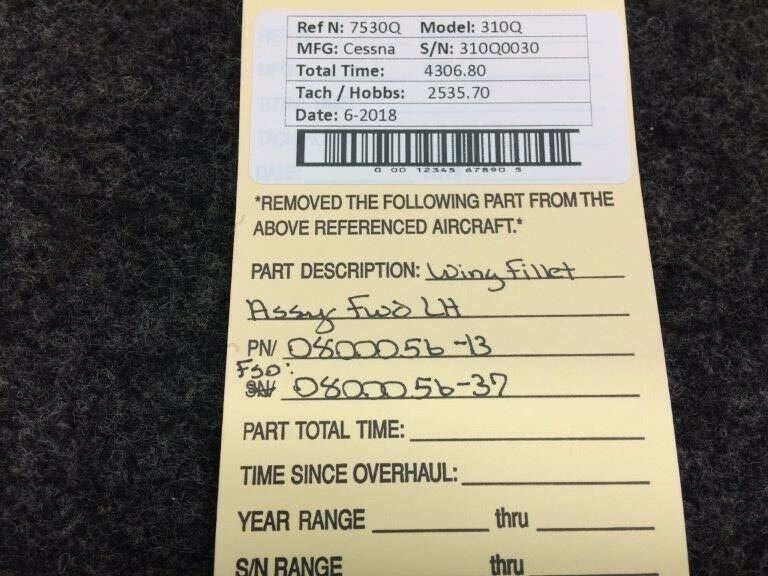 Ref N: 7530Q Model: 310Q
MFG: Cessna S/N: 310Q0030
Total Time: 4306.80
Tach / Hobbs: 2535.70
Date: 6-2018
0 00 12345 67890 5
*REMOVED THE FOLLOWING PART FROM THE
ABOVE REFERENCED AIRCRAFT.*
PART DESCRIPTION: Wing Fillet
Assy Fwd LH
PN/ 0800056-13
FSO:
SN/ 0800056-37
PART TOTAL TIME:
TIME SINCE OVERHAUL:
YEAR RANGE thru
S/N RANGE thru